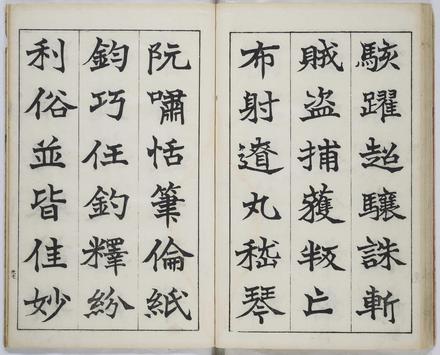 駭躍超驤誅斬
賊盗捕獲叛亡
布射遼丸嵇琴
阮嘯恬筆倫紙
鈞巧任釣釋紛
利俗並皆佳妙